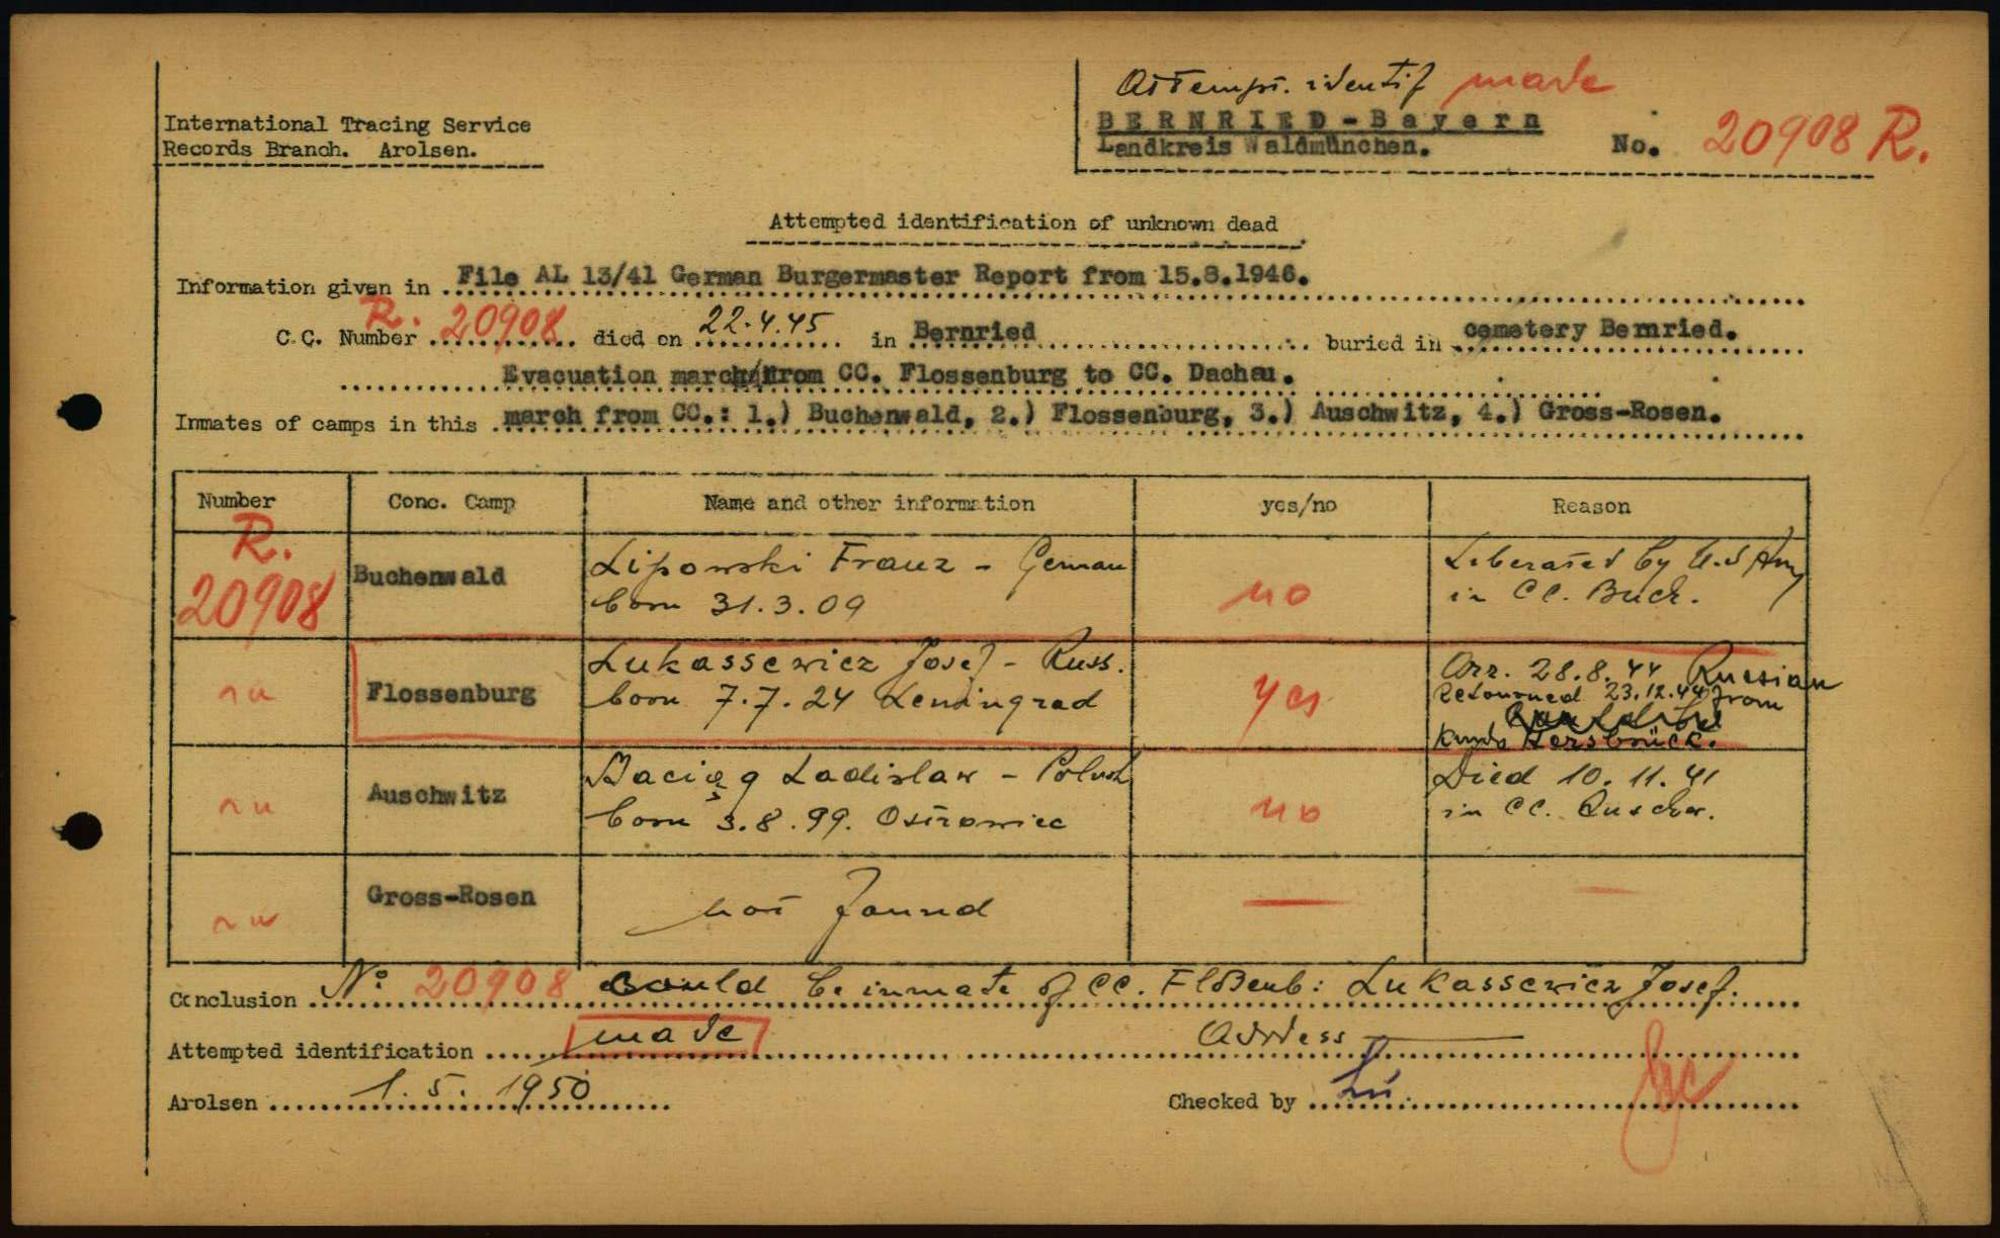 Attempt. identif made
International Tracing Service
Records Branch. Arolsen.
BERNRIED-Bayern
Landkreis Waldmünchen.
No. 20908 R.
Attempted identification of unknown dead
Information given in File AL 13/41 German Burgermaster Report from 15.8.1946.
R.
C.C. Number 20908 died on 22.4.45 in Bernried buried in cemetery Bernried.
Evacuation march from CC. Flossenburg to CC. Dachau.
Inmates of camps in this march from CC.: 1.) Buchenwald, 2.) Flossenburg, 3.) Auschwitz, 4.) Gross-Rosen.
Number Conc. Camp Name and other information yes/no Reason
R.
20908 Buchenwald Lipowski Franz - German no Liberated by U.S Army
born 31.3.09 in CC. Buch.
na Flossenburg Lukassewicz Josef - Russ. yes Arr. 28.8.44 Russian
born 7.7.24 Leningrad Retourned 23.12.44 from
Kmdo Hersbrück.
nu Auschwitz Ladislaw - Polish no Died 10.11.41
born 3.8.99. Ostrowiec in CC. Auschw.
nu Gross-Rosen not found
Conclusion No 20908 could be inmate of CC. Floßenb: Lukassewicz Josef.
Attempted identification made Address
Arolsen 1.5.1950 Checked by